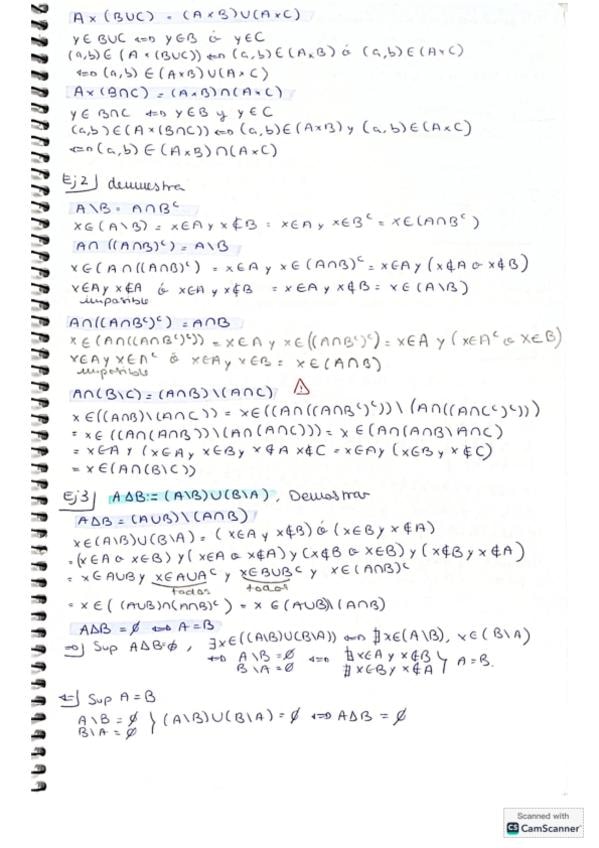 A × (B∪C) = (A × B)∪(A × C)
y∈ B∪C ⇔ y∈B ó y∈C
(a,b)∈(A × (B∪C)) ⇔ (a,b)∈(A×B) ó (a,b)∈(A×C)
⇔ (a,b) ∈ (A×B)∪(A×C)
A × (B∩C) = (A×B)∩(A×C)
y∈ B∩C ⇔ y∈B y y∈C
(a,b)∈(A×(B∩C)) ⇔ (a,b)∈(A×B) y (a,b)∈(A×C)
⇔ (a,b) ∈ (A×B)∩(A×C)
Ej2) demuestra
A\B = A∩Bᶜ
x∈(A\B) = x∈A y x∉B = x∈A y x∈Bᶜ = x∈(A∩Bᶜ)
A∩((A∩B)ᶜ) = A\B
x∈(A∩((A∩B)ᶜ) = x∈A y x∈(A∩B)ᶜ = x∈A y (x∉A ó x∉B)
x∈A y x∉A ó x∈A y x∉B = x∈A y x∉B = x∈(A\B)
imposible
A∩((A∩Bᶜ)ᶜ) = A∩B
x∈(A∩((A∩Bᶜ)ᶜ)) = x∈A y x∈((A∩Bᶜ)ᶜ) = x∈A y (x∈Aᶜ ó x∈B)
x∈A y x∈Aᶜ ó x∈A y x∈B = x∈(A∩B)
imposible
A∩(B\C) = (A∩B)\(A∩C) ⚠
x∈((A∩B)\(A∩C)) = x∈((A∩((A∩Bᶜ)ᶜ))\(A∩((A∩Cᶜ)ᶜ))
= x∈((A∩(A∩B))\(A∩(A∩C))) = x∈(A∩(A∩B\A∩C)
= x∈A y (x∈A y x∈B y x∉A x∉C = x∈A y (x∈B y x∉C)
= x∈(A∩(B\C))
Ej3) A∆B := (A\B)∪(B\A), Demostrar
A∆B = (A∪B)\(A∩B)
x∈(A\B)∪(B\A) = (x∈A y x∉B) ó (x∈B y x∉A)
= (x∈A ó x∈B) y (x∈A ó x∉A) y (x∉B ó x∈B) y (x∉B y x∉A)
= x∈A∪B y x∈A∪Aᶜ y x∈B∪Bᶜ y x∈(A∩B)ᶜ
todos todos
= x∈((A∪B)∩(A∩B)ᶜ) = x∈(A∪B)\(A∩B)
A∆B = ∅ ⇔ A=B
⇒) Sup A∆B=∅, ∄x∈((A\B)∪(B\A)) ⇔ ∄x∈(A\B), x∈(B\A)
⇔ A\B = ∅ ⇔ ∄x∈A y x∉B } A=B.
B\A = ∅ ∄x∈B y x∉A
⇐) Sup A=B
A\B = ∅ } (A\B)∪(B\A) = ∅ ⇔ A∆B = ∅
B\A = ∅
Scanned with
CS CamScanner